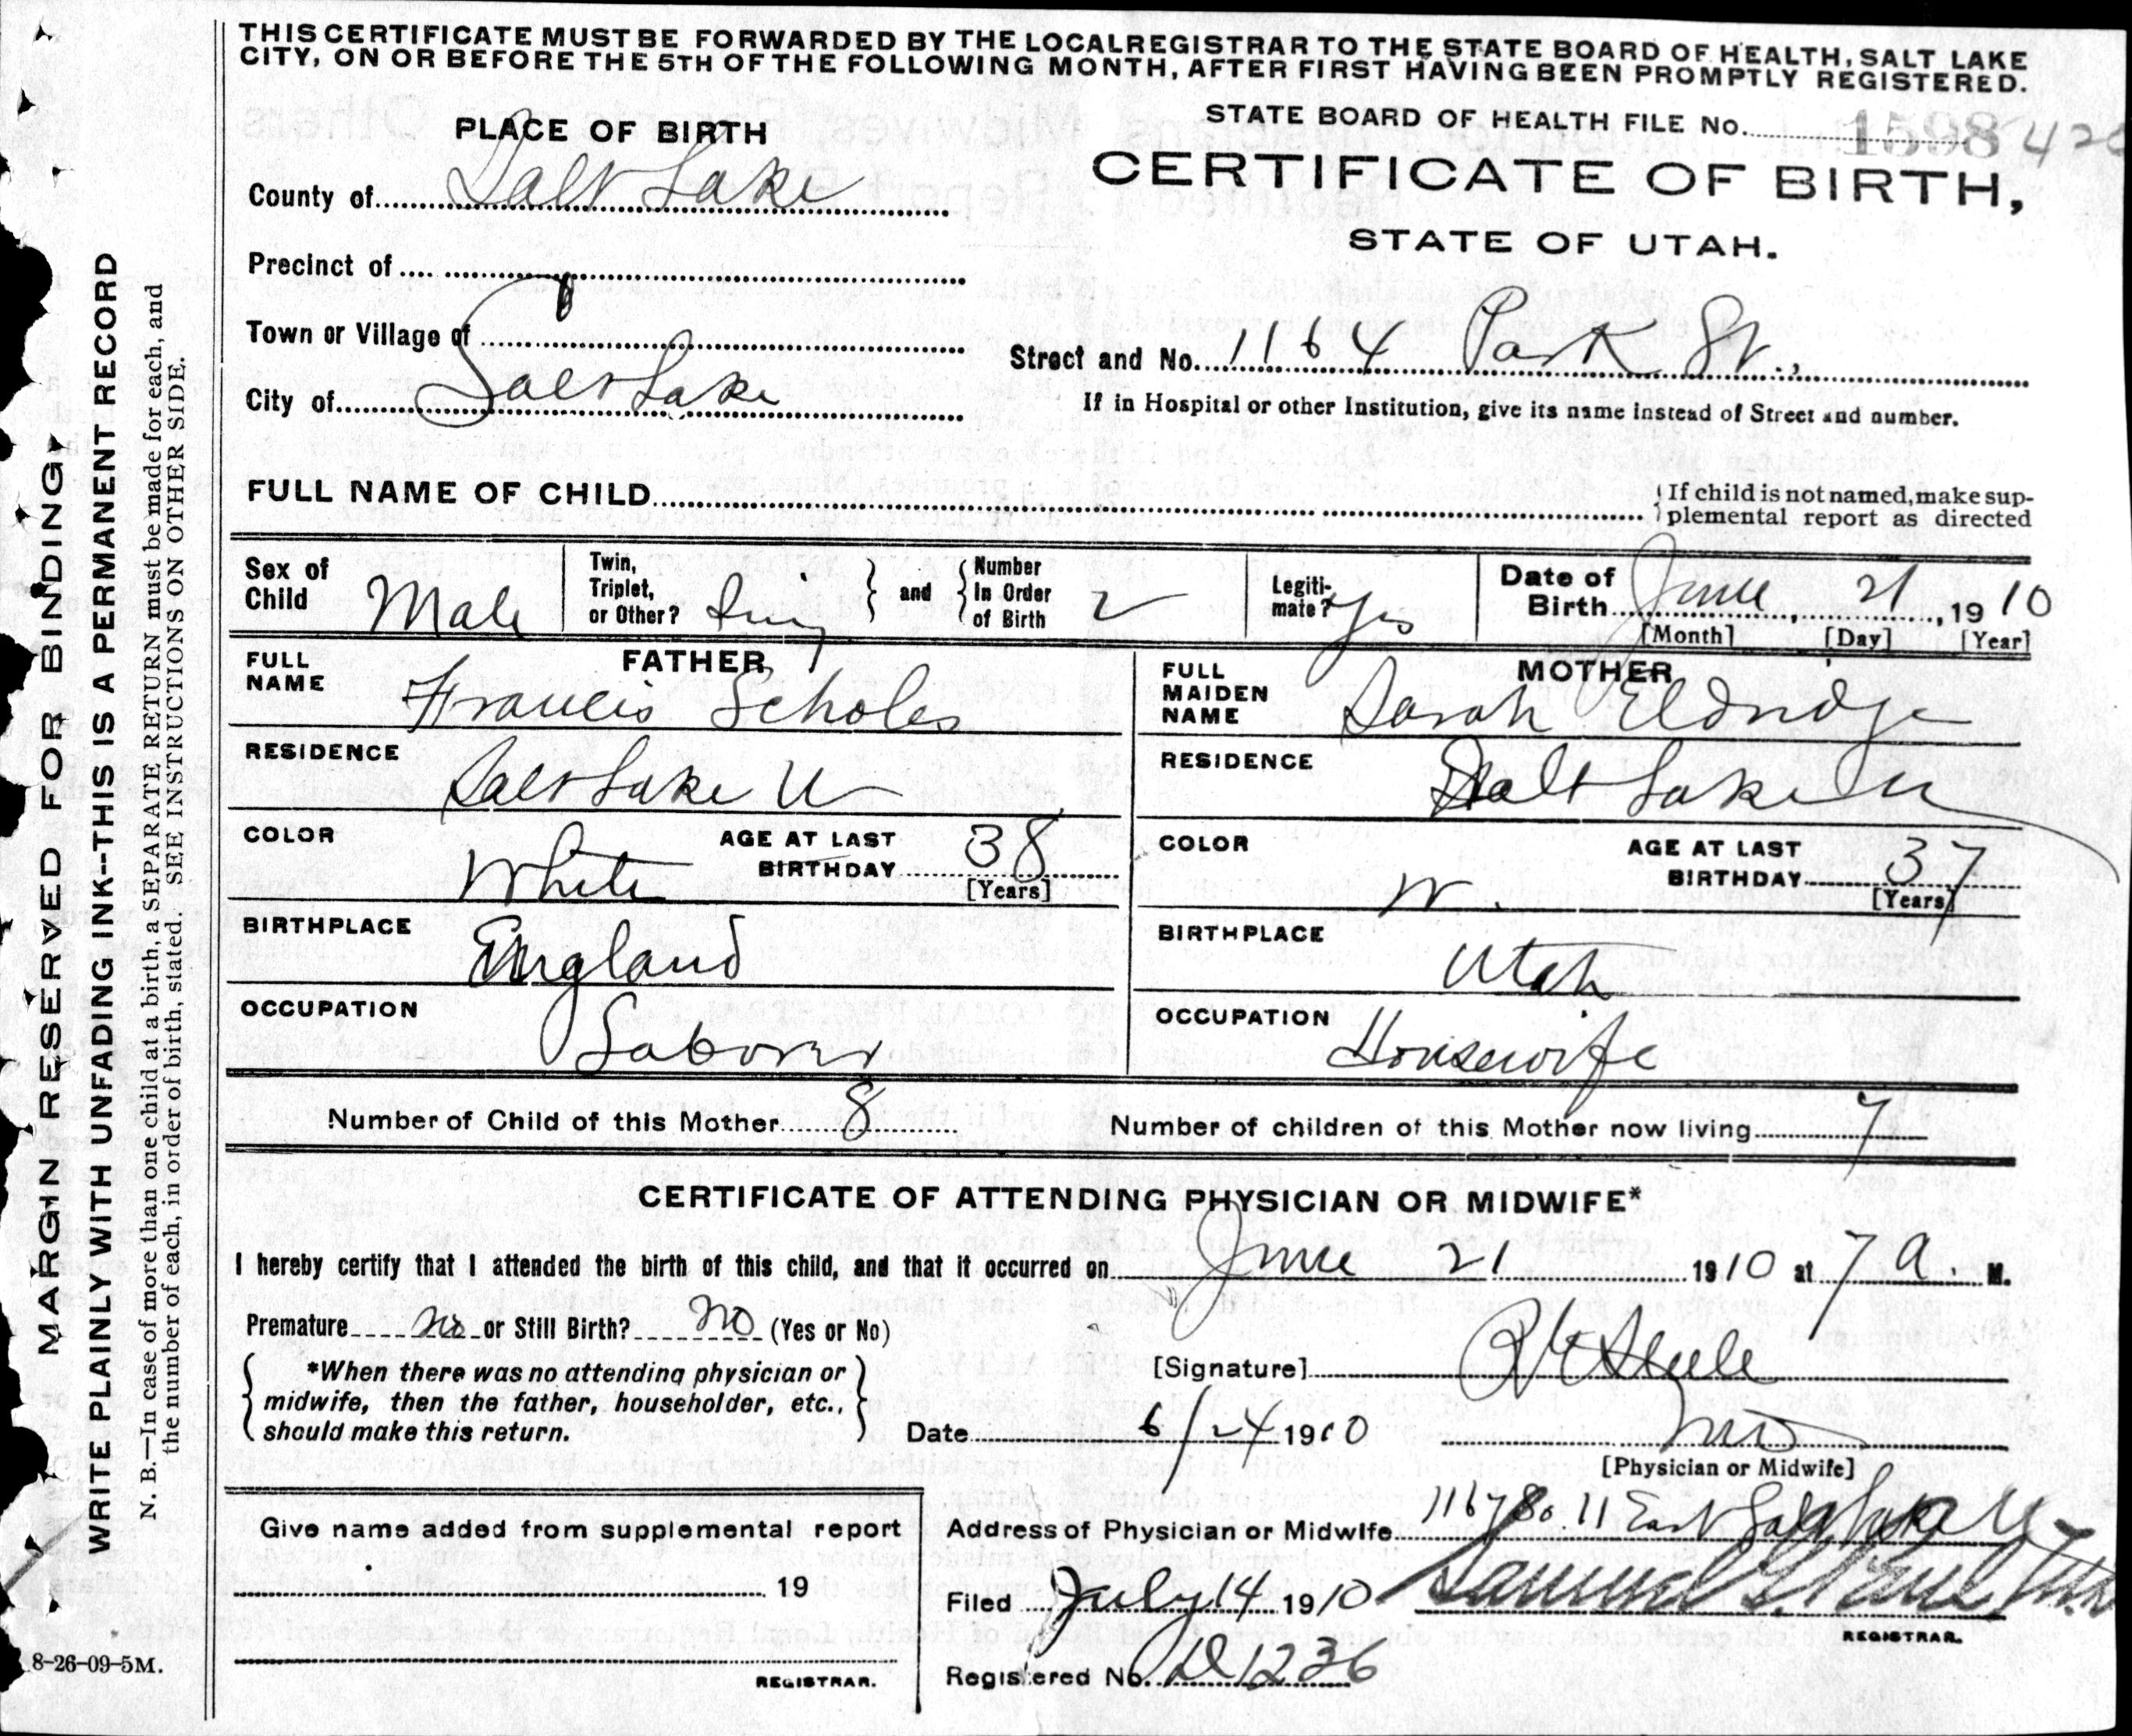 THIS CERTIFICATE MUST BE FORWARDED BY THE LOCAL REGISTRAR TO THE STATE BOARD OF HEALTH, SALT LAKE
CITY, ON OR BEFORE THE 5TH OF THE FOLLOWING MONTH, AFTER FIRST HAVING BEEN PROMPTLY REGISTERED.
STATE BOARD OF HEALTH FILE No. 1598
PLACE OF BIRTH
CERTIFICATE OF BIRTH,
STATE OF UTAH.
County of Salt Lake
Precinct of
Town or Village of
Street and No. 1164 Park St.,
City of Salt Lake
If in Hospital or other Institution, give its name instead of Street and number.
FULL NAME OF CHILD
If child is not named, make sup-
plemental report as directed
Sex of Child Male
Twin, Triplet, or Other?
and
Number In Order of Birth 2
Legiti-mate? Yes
Date of Birth June 21, 1910
[Month] [Day] [Year]
FATHER
FULL NAME Francis Scholes
RESIDENCE Salt Lake U
COLOR White
AGE AT LAST BIRTHDAY 38
[Years]
BIRTHPLACE England
OCCUPATION Laborer
MOTHER
FULL MAIDEN NAME Sarah Eldridge
RESIDENCE Salt Lake U
COLOR W.
AGE AT LAST BIRTHDAY 37
[Years]
BIRTHPLACE Utah
OCCUPATION Housewife
Number of Child of this Mother 8
Number of children of this Mother now living 7
CERTIFICATE OF ATTENDING PHYSICIAN OR MIDWIFE*
I hereby certify that I attended the birth of this child, and that it occurred on June 21 1910 at 7 A. M.
Premature no or Still Birth? no (Yes or No)
*When there was no attending physician or
midwife, then the father, householder, etc.,
should make this return.
[Signature] Steele
Date 6/24 1910
MD
[Physician or Midwife]
Address of Physician or Midwife 1167 So. 11 East Salt Lake U
Give name added from supplemental report
19
REGISTRAR.
Filed July 14 1910 Samuel G. Paul
REGISTRAR.
Registered No. D1236
MARGIN RESERVED FOR BINDING.
WRITE PLAINLY WITH UNFADING INK--THIS IS A PERMANENT RECORD
N. B.—In case of more than one child at a birth, a SEPARATE RETURN must be made for each, and
the number of each, in order of birth, stated. SEE INSTRUCTIONS ON OTHER SIDE.
8-26-09-5M.